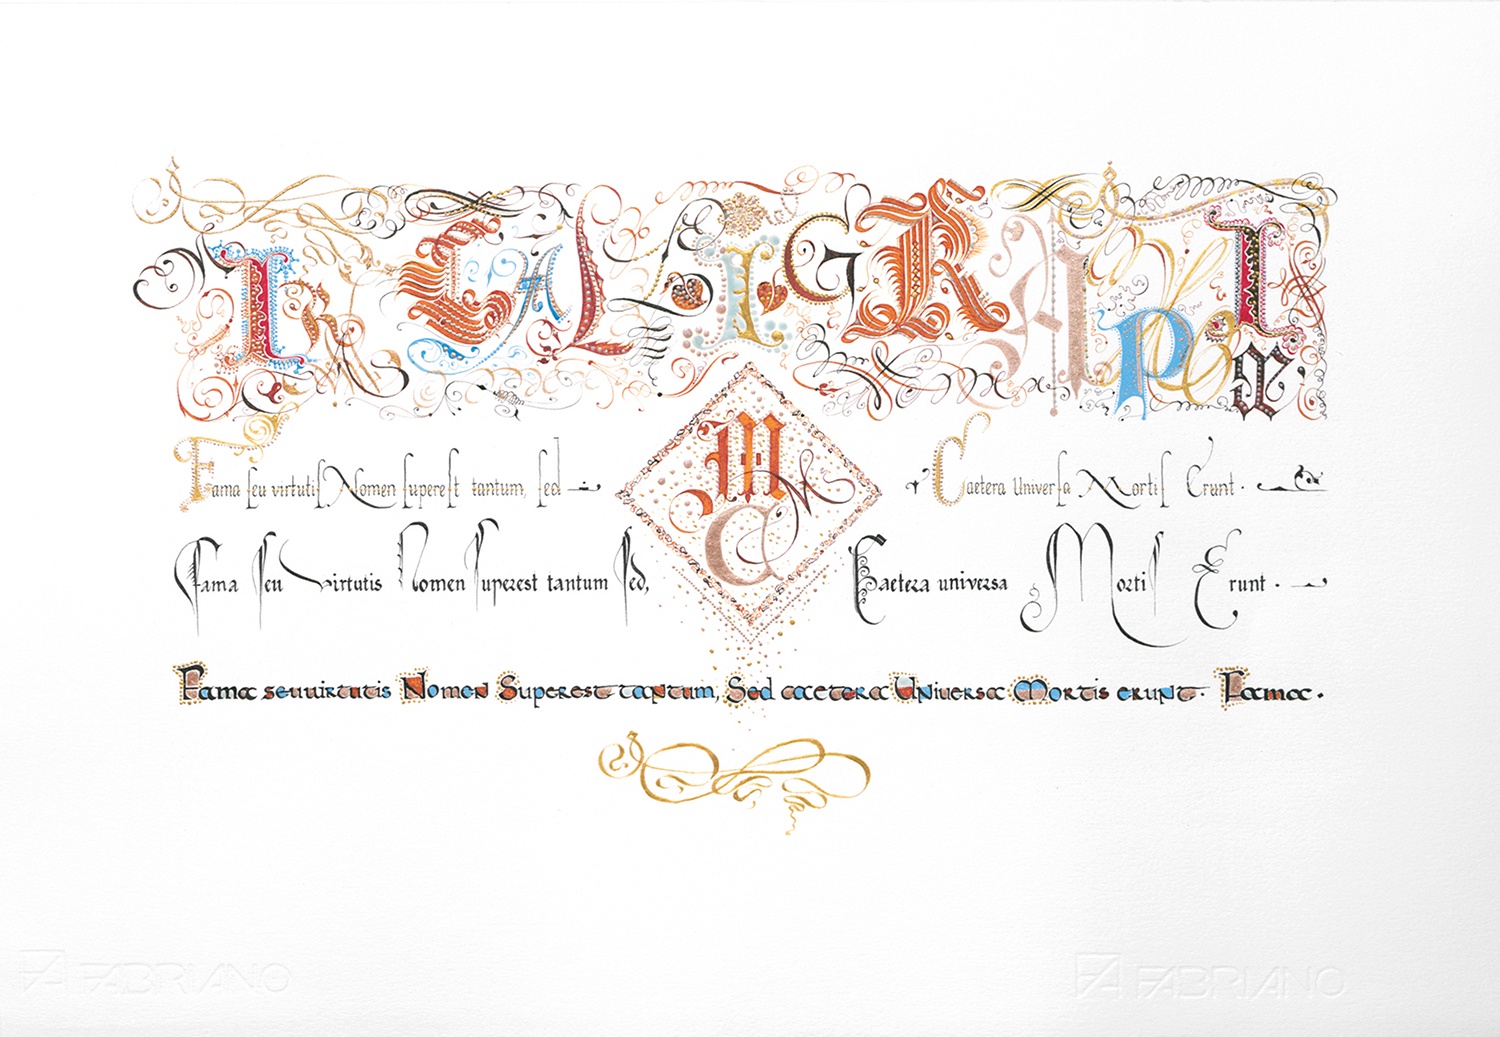 I CALLIGRAPI
Fama seu virtutis Nomen superest tantum, sed
Caetera Universa Mortis Erunt.
M
Fama seu virtutis Nomen superest tantum sed,
Caetera universa Mortis Erunt.
Fama seu virtutis Nomen Superest tantum, Sed caetera Universa Mortis erunt. Fama.
FABRIANO FABRIANO